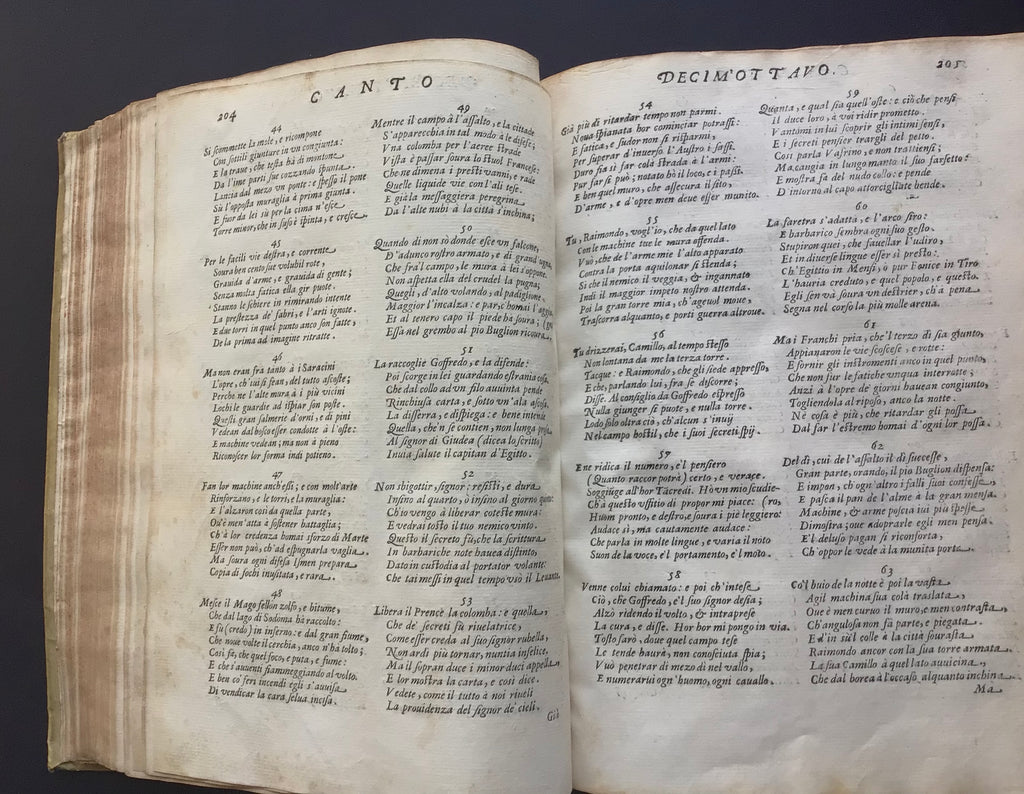 CANTO
204
44
Si scommette la mole, e ricompone
Con sottili giunture in un congiunta:
E la traue, che testa hà di montone
Da l'ime parti sue cozzando spunta.
Lancia dal mezo un ponte: e spesso il pone
Sù l'opposta muraglia à prima giunta.
E fuor da lei sù per la cima n'esce
Torre minor, che in suso è spinta, e cresce
45
Per le facili vie destra, e corrente
Soura ben cento sue volubil rote,
Grauida d'arme, e grauida di gente;
Senza molta fatica ella gir puote.
Stanno le schiere in rimirando intente
La prestezza de' fabri, e l'arti ignote.
E due torri in quel punto anco son fatte,
De la prima ad imagine ritratte.
46
Ma non eran frà tanto à i Saracini
L'opre, ch'iui si fean, del tutto ascoste;
Perche ne l'alte mura à i più vicini
Lochi le guardie ad ispiar son poste.
Questi gran salmerie d'orni, e di pini
Vedean dal bosco esser condotte à l'oste:
E machine vedean; ma non à pieno
Riconoscer lor forma indi potieno.
47
Fan lor machine anch'essi; e con molt'arte
Rinforzano, e le torri, e la muraglia:
E l'alzaron così da quella parte,
Ou'è men'atta à sostener battaglia;
Ch'à lor credenza homai sforzo di Marte
Esser non può, ch'ad espugnarla vaglia.
Ma soura ogni difesa Ismen prepara
Copia di fochi inusitata, e rara.
48
Mesce il Mago fellon zolfo, e bitume,
Che dal lago di Sodoma hà raccolto:
E fù (credo) in inferno: e dal gran fiume,
Che noue volte il cerchia, anco n'hà tolto;
Così fà, che quel foco, e puta, e fume:
E che s'auuenti fiammeggiando al volto.
E ben co' feri incendi egli s'auuisa
Di vendicar la cara selua incisa.
49
Mentre il campo à l'assalto, e la cittade
S'apparecchia in tal modo à le difese;
Vna colomba per l'aeree strade
Vista è passar soura lo stuol Francese:
Che ne dimena i presti vanni, e rade
Quelle liquide vie con l'ali tese.
E già la messaggiera peregrina
Da l'alte nubi à la città s'inchina;
50
Quando di non sò donde esce un falcone,
D'adunco rostro armato, e di grand'ogna,
Che frà'l campo, e le mura à lei s'oppone.
Non aspetta ella del crudel la pugna;
Quegli, d'alto volando, al padiglione,
Maggior l'incalza: e par, c'homai l'aggiugna,
Et al tenero capo il piede hà soura;
Essa nel grembo al pio Buglion ricoura.
51
La raccoglie Goffredo, e la difende:
Poi scorge in lei guardando estrania cosa.
Che dal collo ad un filo auuinta pende
Rinchiusa carta, e sotto vn'ala ascosa.
La disserra, e dispiega: e bene intende
Quella, che'n se contien, non lunga prosa.
Al signor di Giudea (dicea lo scritto)
Inuia salute il capitan d'Egitto.
52
Non sbigottir, signor: resisti, e dura
Insino al quarto, ò insino al giorno quinto:
Ch'io vengo à liberar coteste mura:
E vedrai tosto il tuo nemico vinto.
Questo il secreto fù, che la scrittura
In barbariche note hauea distinto,
Dato in custodia al portator volante:
Che tai messi in quel tempo vsò il Leuante.
53
Libera il Prence la colomba: e quella,
Che de' secreti fù riuelatrice,
Come esser creda al suo signor rubella,
Non ardì più tornar, nuntia infelice.
Ma il sopran duce i minor duci appella,
E lor mostra la carta, e così dice.
Vedete, come il tutto à noi riueli
La prouidenza del signor de' cieli.
Già
DECIM'OTTAVO.
205
54
Già più di ritardar tempo non parmi.
Noua spianata hor cominciar potrassi:
E fatica, e sudor non si risparmi,
Per superar d'inuerso l'Austro i sassi.
Duro fia sì far colà strada à l'armi:
Pur far si può; notato hò il loco, e i passi.
E ben quel muro, che assecura il sito,
D'arme, e d'opre men deue esser munito.
55
Tu, Raimondo, vogl'io, che da quel lato
Con le machine tue le mura offenda.
Vuò, che de l'arme mie l'alto apparato
Contra la porta aquilonar si stenda;
Si che il nemico il veggia, & ingannato
Indi il maggior impeto nostro attenda.
Poi la gran torre mia, ch'ageuol moue,
Trascorra alquanto, e porti guerra altroue.
56
Tu drizzerai, Camillo, al tempo stesso
Non lontana da me la terza torre.
Tacque: e Raimondo, che gli siede appresso,
E che, parlando lui, fra se discorre;
Disse. Al consiglio da Goffredo espresso
Nulla giunger si puote, e nulla torre.
Lodo solo oltra ciò, ch'alcun s'inuij
Nel campo hostil, che i suoi secreti spij
57
E ne ridica il numero, e'l pensiero
(Quanto raccor potrà) certo, e verace.
Soggiuge all'hor Tãcredi. Hò vn mio scudie-
Ch'à questo vffitio di propor mi piace: (ro,
Huom pronto, e destro, e soura i piè leggiero:
Audace sì, ma cautamente audace:
Che parla in molte lingue, e varia il noto
Suon de la voce, e'l portamento, e'l moto.
58
Venne colui chiamato: e poi ch'intese
Ciò, che Goffredo, e'l suo signor desia;
Alzò ridendo il volto, & intraprese
La cura, e disse. Hor hor mi pongo in via.
Tosto sarò, doue quel campo tese
Le tende haurà, non conosciuta spia;
Vuò penetrar di mezo dì nel vallo,
E numerarui ogn'huomo, ogni cauallo.
59
Quanta, e qual sia quell'oste: e ciò che pensi
Il duce loro, à voi ridir prometto.
Vantomi in lui scoprir gli intimi sensi,
E i secreti pensier trargli del petto.
Così parla Vafrino, e non trattiensi;
Ma cangia in lungo manto il suo farsetto:
E mostra fa del nudo collo: e pende
D'intorno al capo attorcigliate bende.
60
La faretra s'adatta, e l'arco siro:
E barbarico sembra ogni suo gesto.
Stupiron quei, che fauellar l'udiro,
Et in diuerse lingue esser sì presto:
Ch'Egittio in Menfi, ò pur Fenice in Tiro
L'hauria creduto, e quel popolo, e questo.
Egli sen và soura vn destrier, ch'à pena
Segna nel corso la più molle arena.
61
Ma i Franchi pria, che'l terzo dì sia giunto,
Appianaron le vie scoscese, e rotte:
E fornir gli instromenti anco in quel punto,
Che non fur le fatiche vnqua interrotte;
Anzi à l'opre de' giorni hauean congiunto,
Togliendola al riposo, anco la notte.
Nè cosa è più, che ritardar gli possa
Dal far l'estremo homai d'ogni lor possa.
62
Del dì, cui de l'assalto il dì successe,
Gran parte, orando, il pio Buglion dispensa:
E impon, ch'ogn'altro i falli suoi confesse,
E pasca il pan de l'alme à la gran mensa.
Machine, & arme poscia iui più spesse
Dimostra; oue adoprarle egli men pensa.
E'l deluso pagan si riconforta,
Ch'oppor le vede à la munita porta.
63
Co'l buio de la notte è poi la vasta
Agil machina sua colà traslata,
Oue è men curuo il muro, e men contrasta,
Ch'angulosa non fà parte, e piegata.
E d'in sù'l colle à la città sourasta
Raimondo ancor con la sua torre armata.
La sua Camillo à quel lato auuicina,
Che dal borea à l'occaso, alquanto inchina
Ma